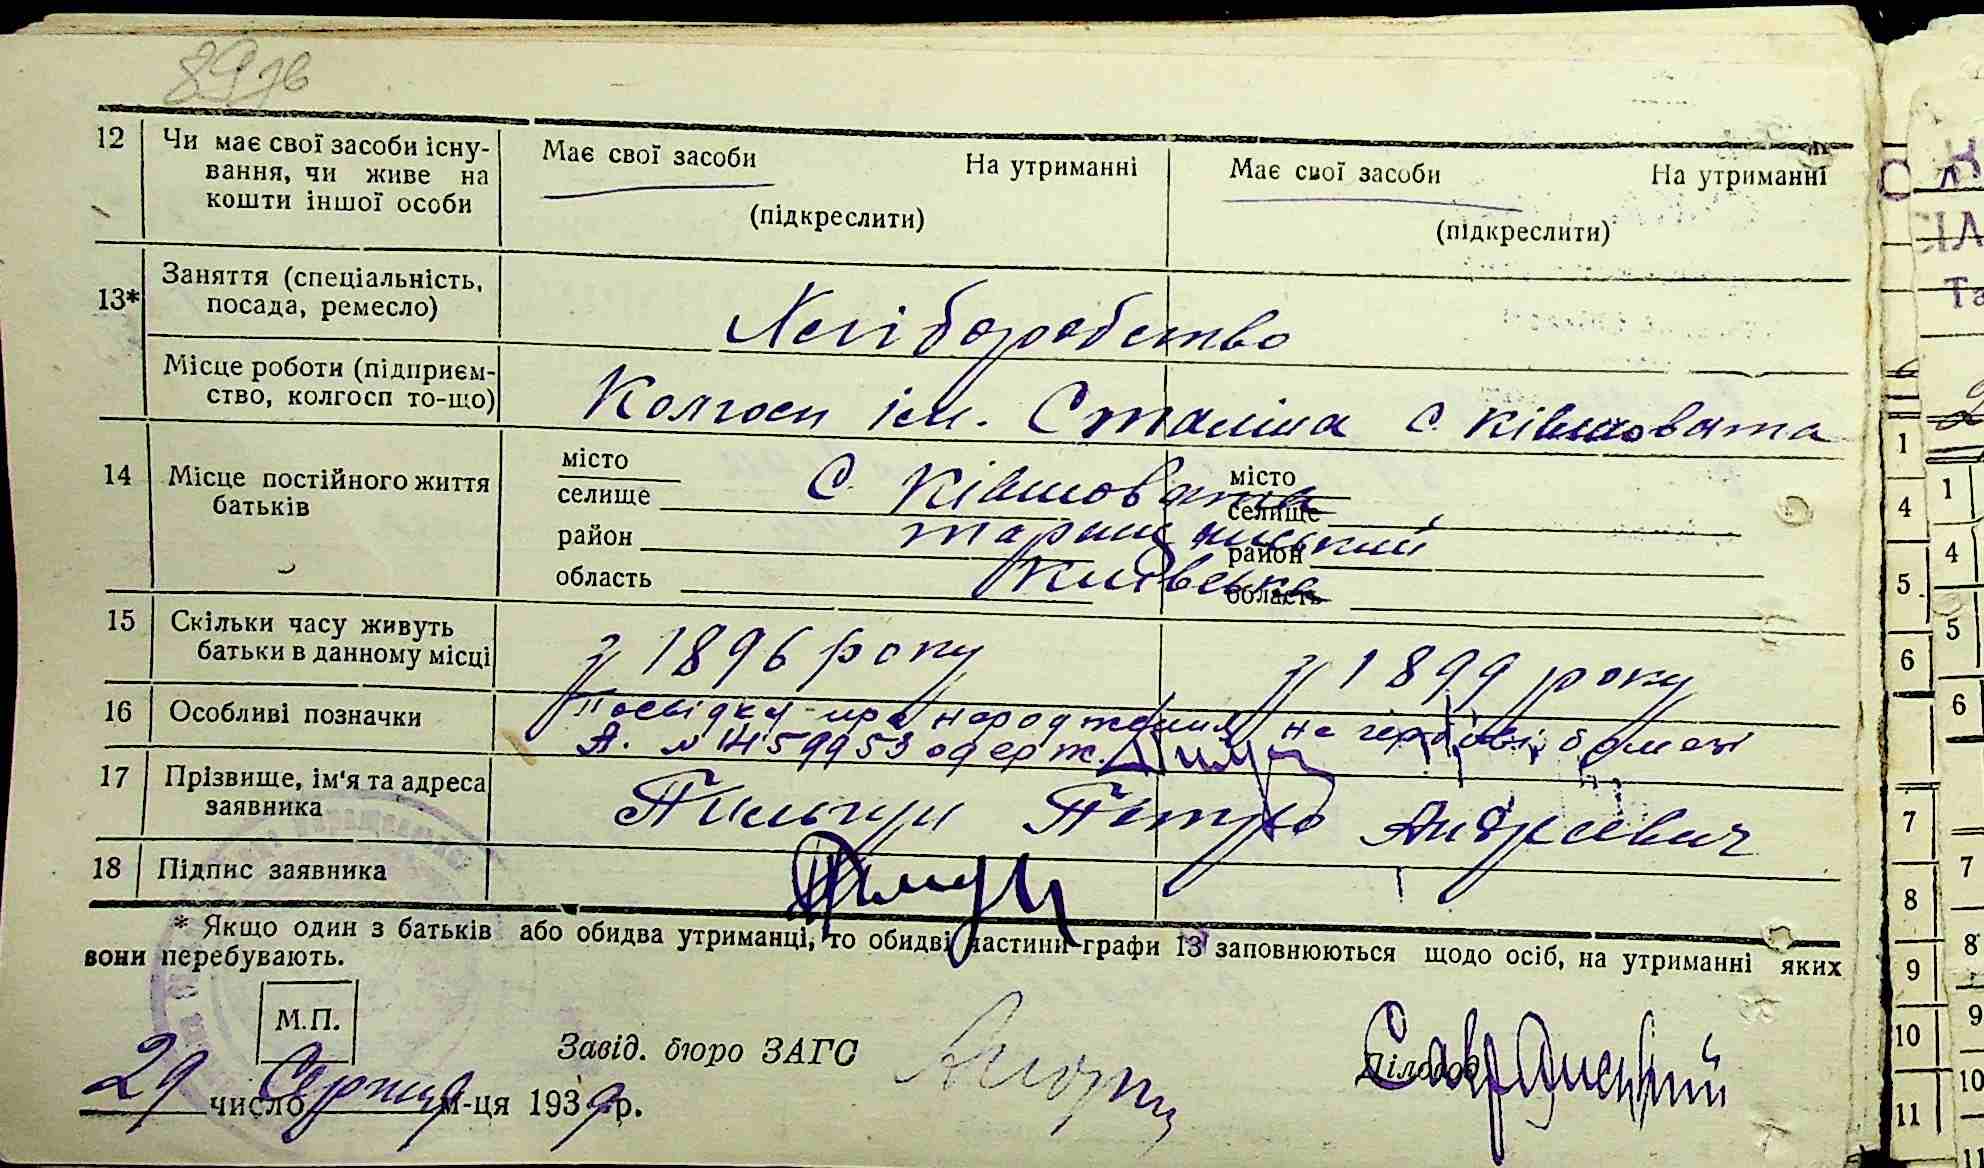 89зв
12 Чи має свої засоби існу-
вання, чи живе на
кошти іншої особи
Має свої засоби На утриманні
(підкреслити)
Має свої засоби На утриманні
(підкреслити)
13* Заняття (спеціальність,
посада, ремесло)
Хліборобство
Місце роботи (підприєм-
ство, колгосп то-що)
Колгосп ім. Сталіна с. Ківшовата
14 Місце постійного життя
батьків
місто
селище
район
область
с. Ківшовата
таращанський
Київська
місто
селище
район
область
15 Скільки часу живуть
батьки в данному місці
з 1896 року з 1899 року
16 Особливі позначки
Посвідку про народження на гербові бумазі
А. № 1459953 одерж.
17 Прізвище, ім'я та адреса
заявника
Петро Андрієвич
18 Підпис заявника
* Якщо один з батьків або обидва утриманці, то обидві частини графи 13 заповнюються щодо осіб, на утриманні яких
вони перебувають.
М.П.
Завід. бюро ЗАГС
Діловод
29 число Серпня м-ця 1939 р.
1
4
5
6
7
8
9
10
11
1
4
5
6
7
8
9
10
11